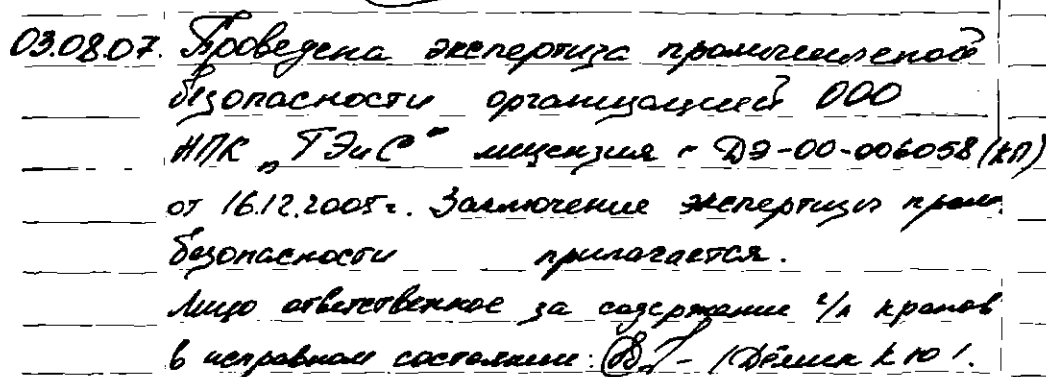 03.08.07. Проведена экспертиза промышленной
безопасности организацией ООО
НПК „ТЭиС" лицензия ДЭ-00-006058 (КП)
от 16.12.2005г. Заключение экспертизы пром.
безопасности прилагается.
Лицо ответственное за содержание г/п кранов
в исправном состоянии: